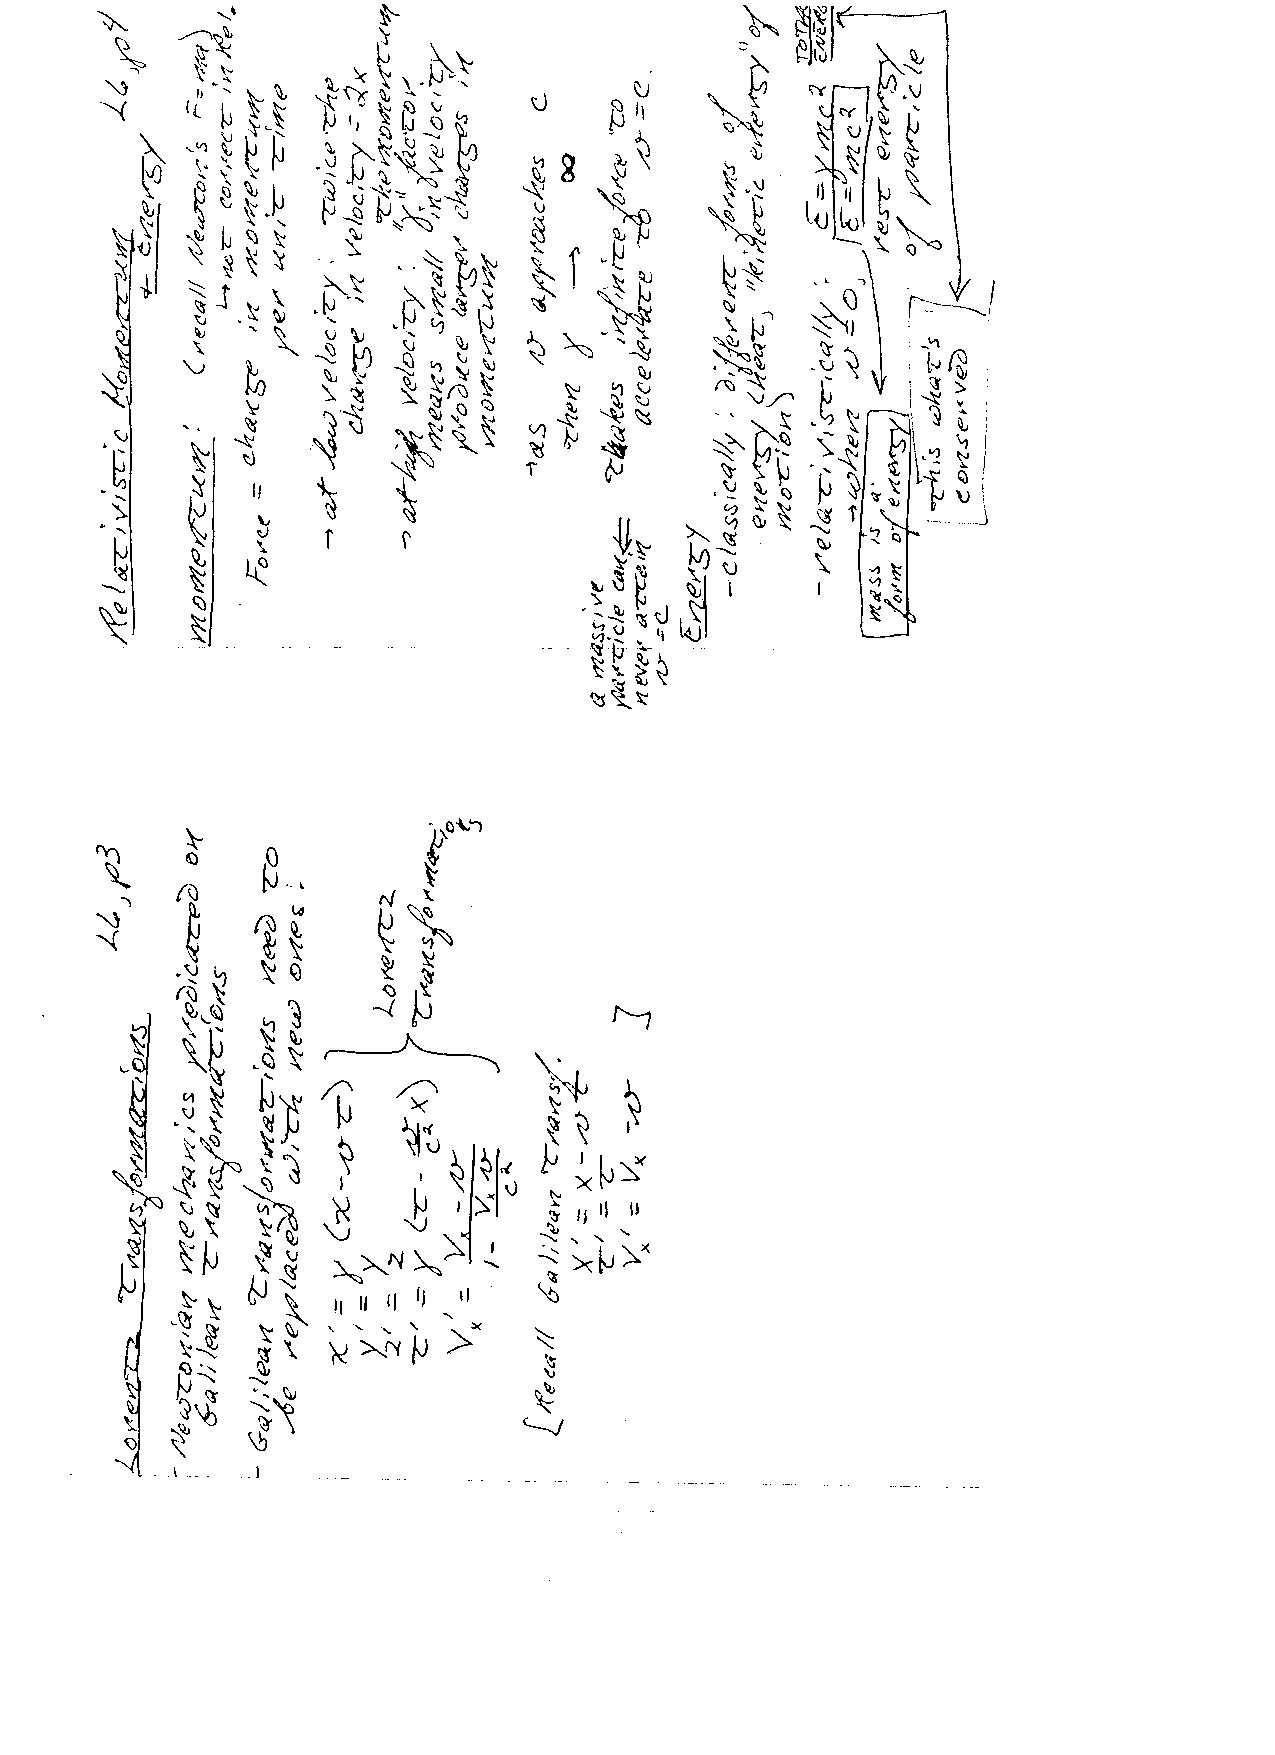 Lorentz Transformations L6, p3
- Newtonian mechanics predicated on
Galilean transformations
- Galilean transformations need to
be replaced with new ones:
x' = γ (x - vt)
y' = y
z' = z
t' = γ (t - v/c² x)
Vx' = (Vx - v) / (1 - Vx v/c²)
} Lorentz
Transformations
[Recall Galilean Transf.
x' = x - vt
t' = t
Vx' = Vx - v ]
Relativistic Momentum L6, p4
+ Energy
momentum: (recall Newton's F=ma)
↳ not correct in Rel.
Force = change in momentum
per unit time
→ at low velocity: twice the
change in velocity = 2x
the momentum
→ at high velocity: "γ" factor
means small in velocity
produce larger changes in
momentum
→ as v approaches c
then γ → ∞
takes infinite force to
accelerate to v=c.
a massive
particle can ⇐
never attain
v=c
Energy
- classically: different forms of
energy (heat, "kinetic energy" of
motion)
- relativistically: E=γmc² TOTAL
ENERGY
→ when v=0, E=mc²
rest energy
of particle
mass is a
form of energy
This what's
conserved